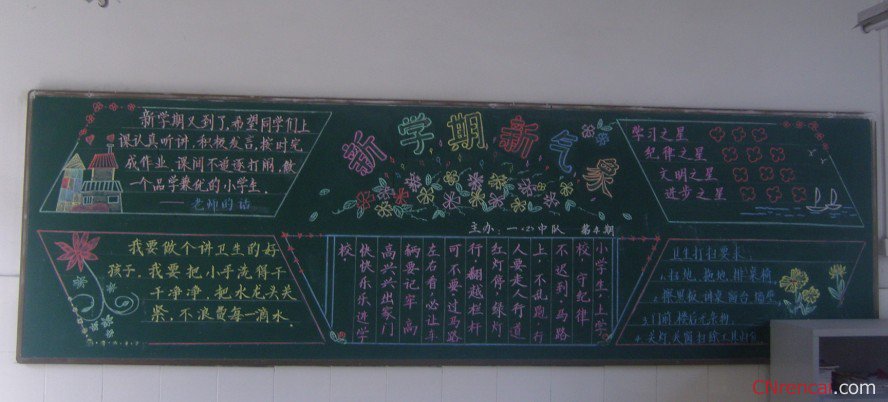 新学期又到了,希望同学们上
课认真听讲,积极发言,按时完
成作业,课间不追逐打闹,做
一个品学兼优的小学生。
——老师的话
新学期新气象
主办:一(2)中队 第4期
学习之星
纪律之星
文明之星
进步之星
我要做个讲卫生的好
孩子,我要把小手洗得干
干净净,把水龙头关
紧,不浪费每一滴水。
小学生,上学
校,守纪律
不迟到,马路
上,不乱跑,行
人要走人行道
红灯停,绿灯
行,翻越栏杆
可不要,过马路
左右看,必让车
辆要记牢,高
高兴兴出家门
快快乐乐进学
校。
卫生打扫要求:
1.扫地、拖地、排桌椅
2.擦黑板、讲桌、窗台
3.门前、楼后无杂物.
4.关灯、关窗、扫除工具
CNrencai.com